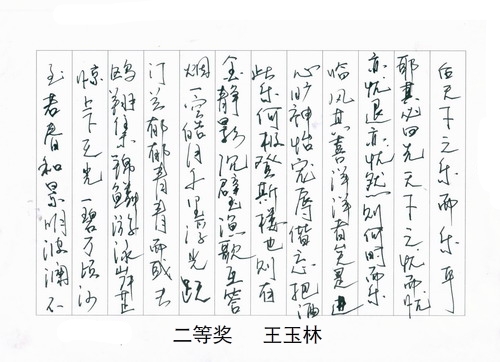 至若春和景明波澜不
惊上下天光一碧万顷沙
鸥翔集锦鳞游泳岸芷
汀兰郁郁青青而或长
烟一空皓月千里浮光跃
金静影沉璧渔歌互答
此乐何极登斯楼也则有
心旷神怡宠辱偕忘把酒
临风其喜洋洋者矣是进
亦忧退亦忧然则何时而乐
耶其必曰先天下之忧而忧
后天下之乐而乐乎
二等奖 王玉林